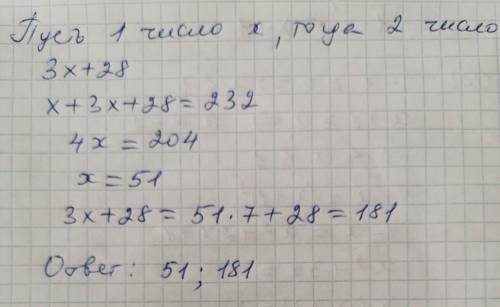 Пусть 1 число x, тогда 2 число
3x+28
x+3x+28=232
4x=204
x=51
3x+28=51·7+28=181
Ответ: 51; 181